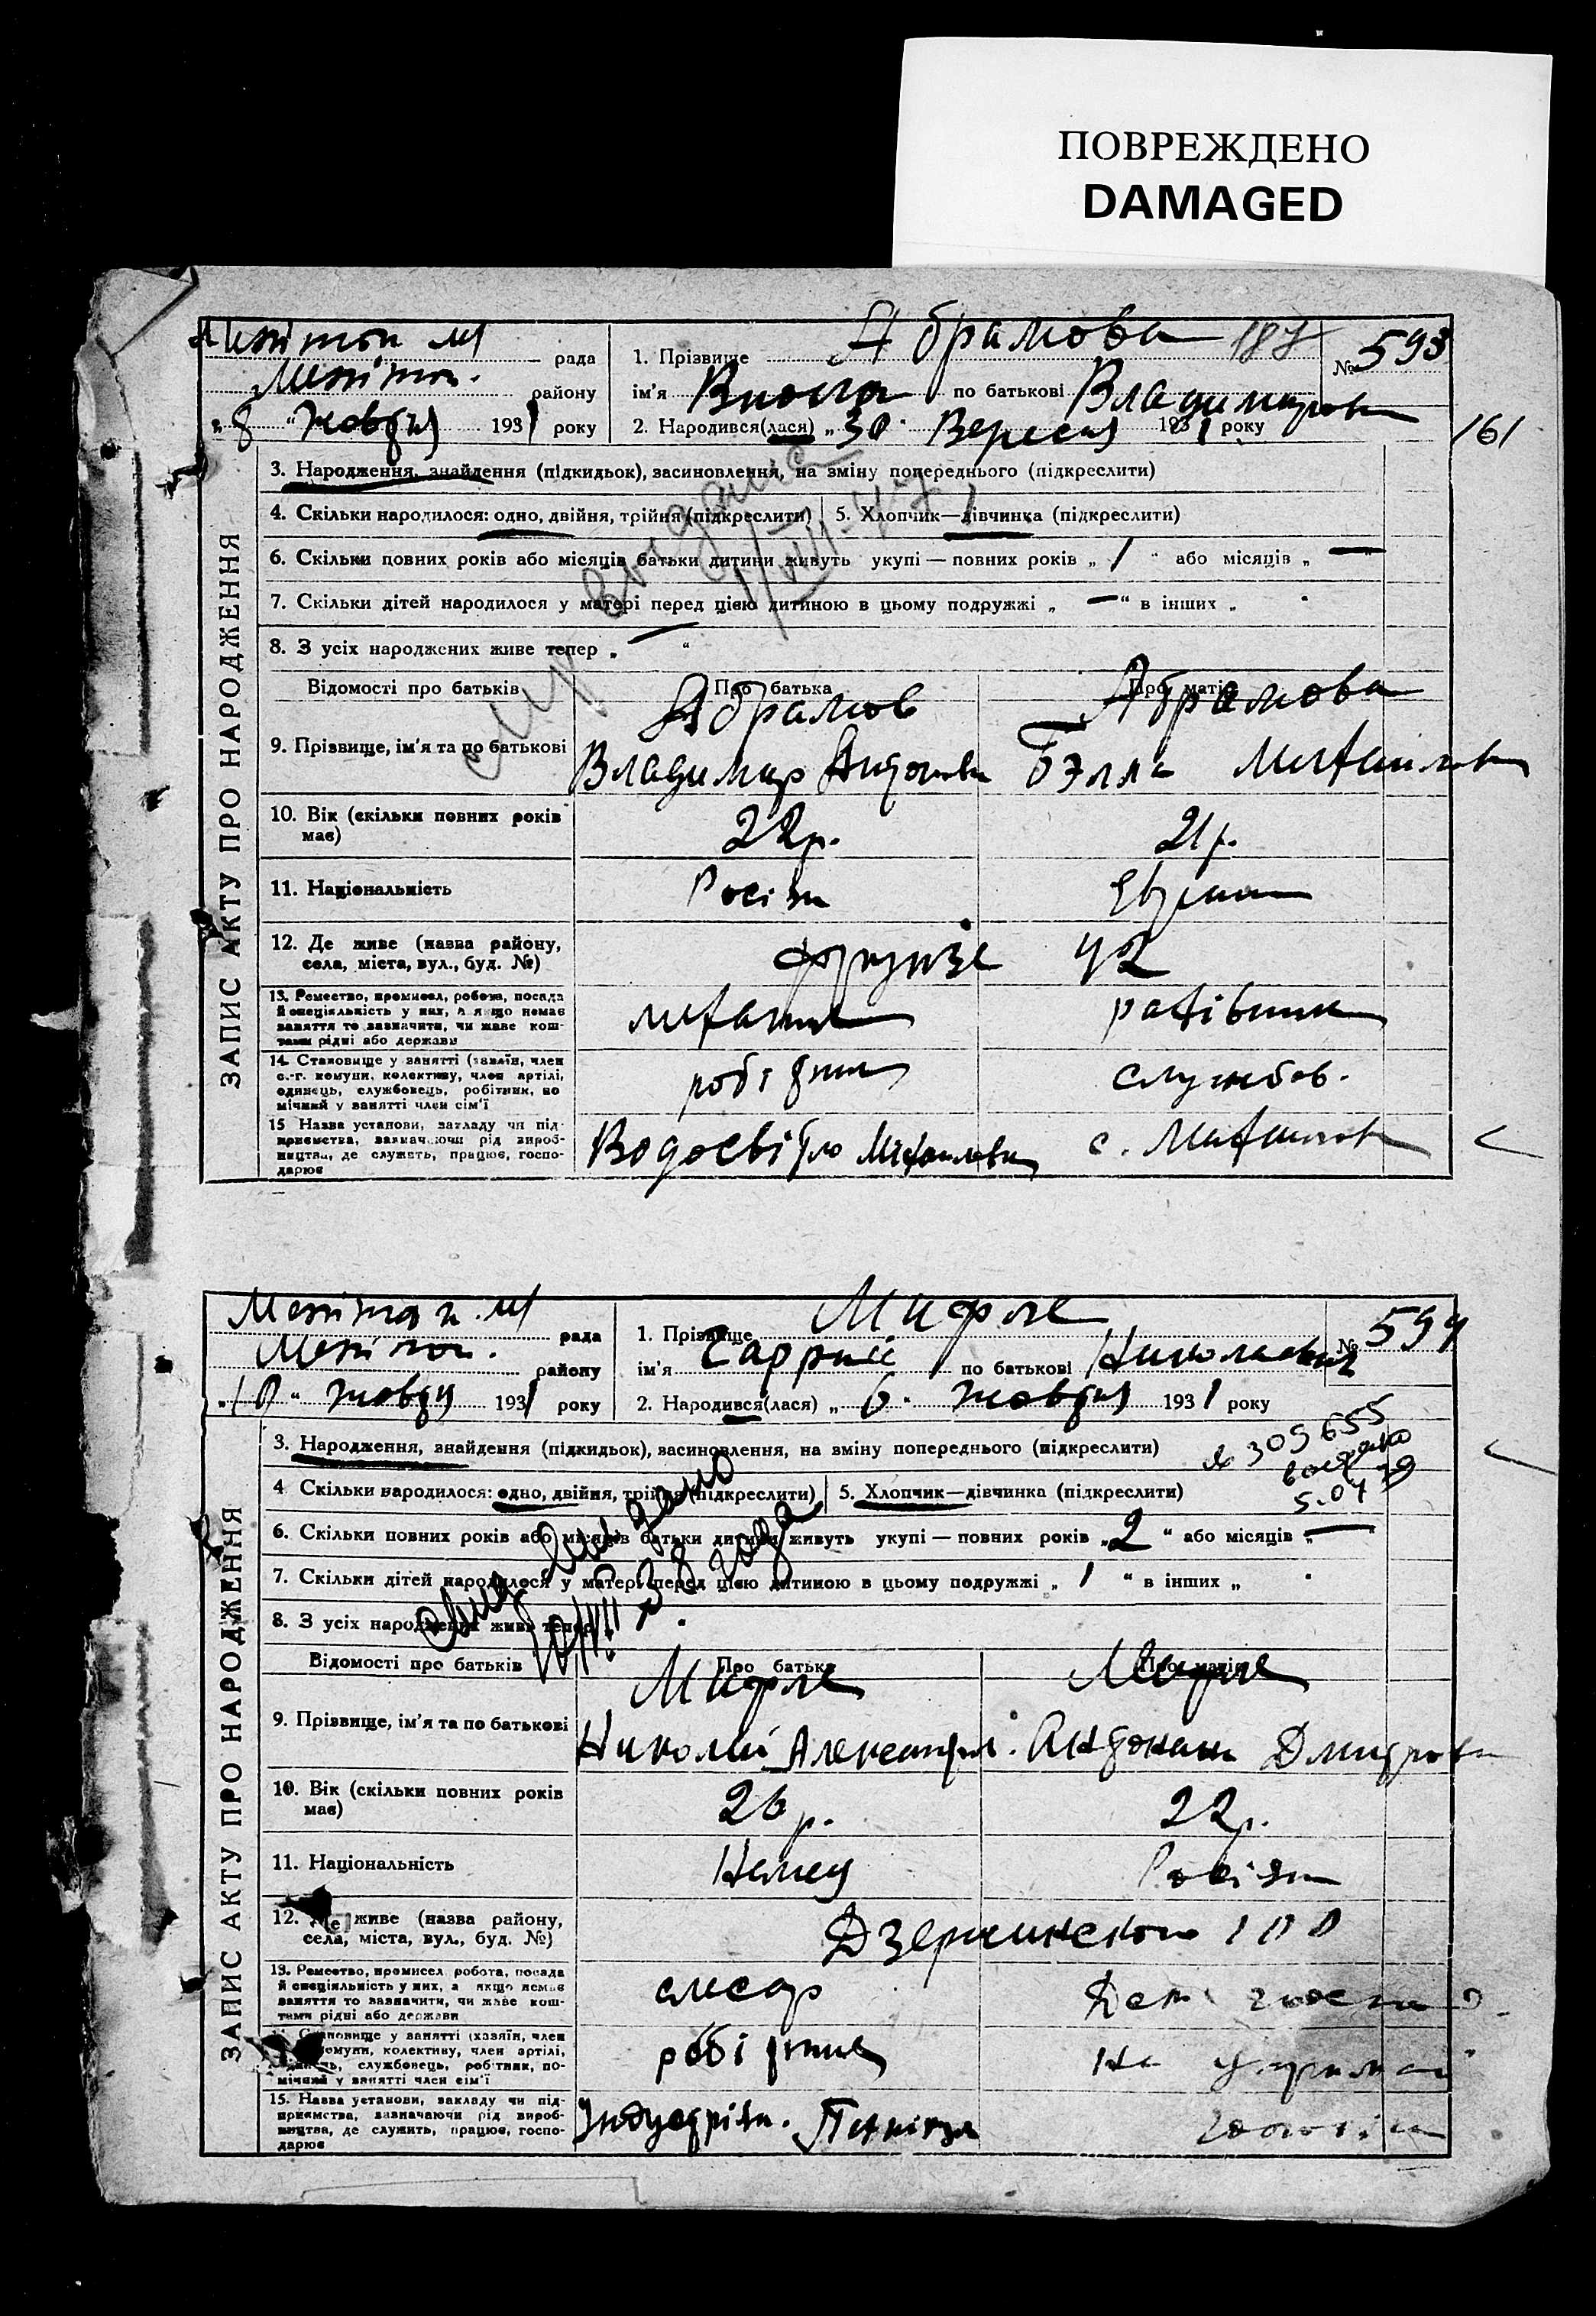 ПОВРЕЖДЕНО
DAMAGED
Мелітоп. рада
Мелітоп. району
„8“ Жовтня 1931 року
1. Прізвище Абрамова 187
№ 593
ім'я по батькові Владимиров
2. Народився(лася) „30“ Вересня 1931 року
161
ЗАПИС АКТУ ПРО НАРОДЖЕННЯ
3. Народження, знайдення (підкидьок), засиновлення, на зміну попереднього (підкреслити)
4. Скільки народилося: одно, двійня, трійня (підкреслити)
5. Хлопчик—дівчинка (підкреслити)
6. Скільки повних років або місяців батьки дитини живуть укупі — повних років „1“ або місяців „—
7. Скільки дітей народилося у матері перед цією дитиною в цьому подружжі „—“ в інших „
8. З усіх народжених живе тепер „—“
Відомості про батьків
Про батька
Про матір
9. Прізвище, ім'я та по батькові
Абрамов
Владимир
Абрамова
Бэлла Михайлов
10. Вік (скільки повних років має)
22р.
21р.
11. Національність
Росіян
Еврейка
12. Де живе (назва району, села, міста, вул., буд. №)
Фрунзе 42
13. Ремество, промисел, робота, посада й спеціяльність у них, а якщо немає заняття то зазначити, чи живе коштами рідні або держави
механик
рахівник
14. Становище у занятті (хазяїн, член с.-г. комуни, колективу, член артілі, одинець, службовець, робітник, помічний у занятті член сім'ї
робітник
службов.
15 Назва установи, закладу чи підприємства, зазначаючи рід виробництва, де служить, працює, господарює
Водосвітло Михайловка
с. Михайловк
Мелітоп. рада
Мелітоп. району
„10“ Жовтн 1931 року
1. Прізвище Мифле
№ 594
ім'я Гаррий по батькові Николаевич
2. Народився(лася) „6“ Жовтня 1931 року
№ 309655
5.04 79
ЗАПИС АКТУ ПРО НАРОДЖЕННЯ
3. Народження, знайдення (підкидьок), засиновлення, на зміну попереднього (підкреслити)
4 Скільки народилося: одно, двійня, трійня (підкреслити)
5. Хлопчик—дівчинка (підкреслити)
6. Скільки повних років або місяців батьки дитини живуть укупі — повних років „2“ або місяців „—
7. Скільки дітей народилося у матері перед цією дитиною в цьому подружжі „1“ в інших „
8. З усіх народжених живе тепер
38 года
Відомості про батьків
Про батька
Про матір
9. Прізвище, ім'я та по батькові
Мифле
Николай Александр.
Мифле
Антонина Дмитров
10. Вік (скільки повних років має)
26р.
22р.
11. Національність
Немец
Росіян
12. Де живе (назва району, села, міста, вул., буд. №)
Дзержинского 100
13. Ремество, промисел робота, посада й спеціяльність у них, а якщо немає заняття то зазначити, чи живе коштами рідні або держави
слесар
Дом. госпо
14. Становище у занятті (хазяїн, член комуни, колективу, член артілі, одинець, службовець, робітник, помічний у занятті член сім'ї
робітник
На утриман
15. Назва установи, закладу чи підприємства, зазначаючи рід виробництва, де служить, працює, господарює
Индустріал. Технікум